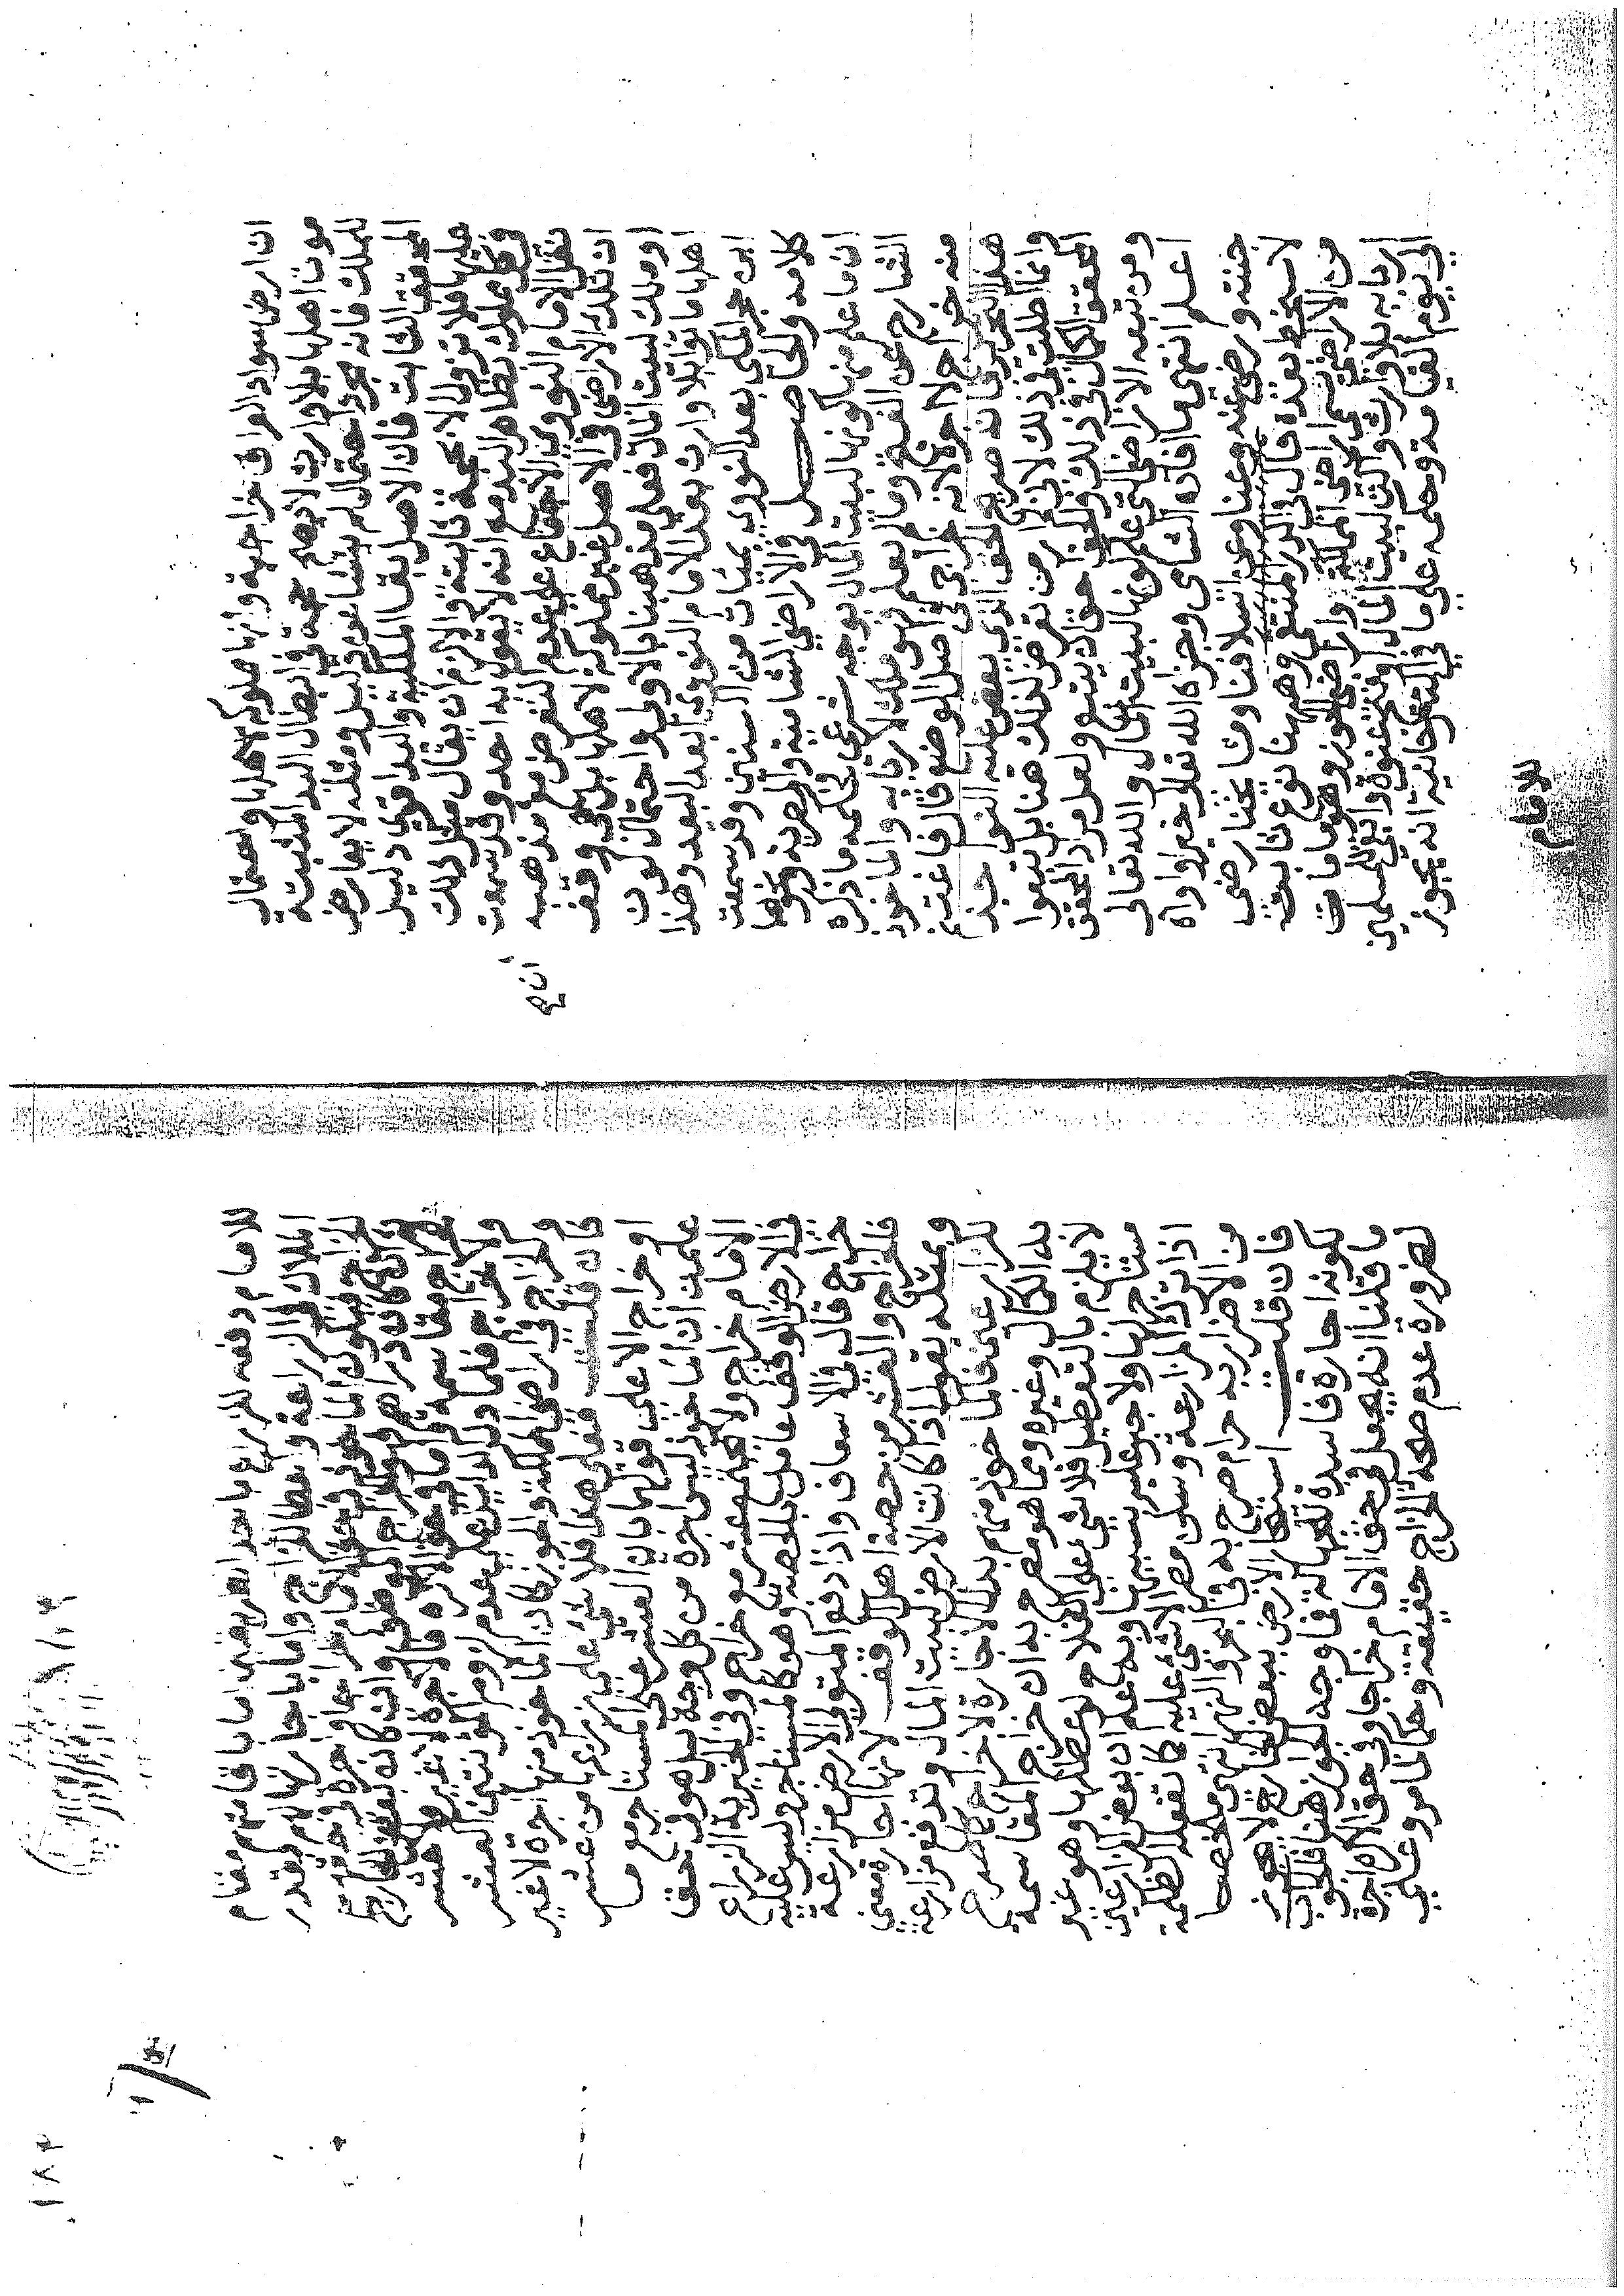 ان ارض سواد العراق خراجية وانها مملوكة لاهلها واحتمال
موت اهلها بلا وارث لا يصلح حجة في ابطال اليد المثبتة
للملك فانه مجرد احتمال لم ينشا عن دليل ومثله لا يعارض
المحقق الثابت فان الاصل بقا الملكية واليد اقوى دليل
عليها فلا تزول الا بحجة ثابتة والا لزم ان يقال مثل ذلك
في كل مملوك بظاهر اليد مع انه لا يقول به احد وقد سمعت
نقل الامام النووي الاجماع على عدم التعرض مع مذهبه
ان صح
ان تلك الاراضي في الاصل غير مملوكة لاهلها بل هي وقف
او ملك لبيت المال فعلى مذهبنا بالاولى واحتمال كون
اهلها ماتوا بلا وارث بعد الامام النووي ابعد البعد وهذا
ابن حجر المكي بعد النووي بمئات من السنين وقد سمعت
كلامه والحاصل في الاراضي الشامية والمصرية ونحوها
ان ما علم منها كونها لبيت المال بوجه شرعي فحكمه ما ذكره
الشارح عن الفتح وما لم يعلم فهو ملك لاربابه والماخوذ
منه خراج لا اجرة لانه خراجي في اصل الوضع قال فاغتنم
هذا التحرير فانه صريح الحق الذي يعض عليه النواجذ
وانما اطلت في ذلك لاني لم ار من تعرض لذلك هنا بل تبعوا
المحقق الكمال في ذلك والحق احق ان يتبع ولعل مراد المحقق
ومن تبعه الاراضي التي علم كونها لبيت المال والله تعالى
اعلم انتهى ما افاده الشامي وجزاه الله تعالى خيرا واواه
جنته ورضي عنه وعنا وعن اسلافنا ومشايخنا رضى
لا سخط بعده قال في الدر المنتقى وهنا نوع ثالث
من الاراضي تسمى اراضي المملكة واراضي الحوز وهو ما مات
اربابه بلا وارث وآل لبيت المال او فتح عنوة وابقي للمسلمين
الى يوم القيامة وحكمه على ما في التتارخانية انه يجوز
للامام
١٨٣
للامام دفعه للزراع باحد الطريقين اما باقامتهم مقام
الملاك في الزراعة واعطا الخراج واما باجارتها لهم بقدر
الخراج فيكون الماخوذ في حق الامام خراجا واجرة في حقهم
ثم ان كان دراهم فهو خراج موظف وان كان بعض الخارج
فخراج مقاسمة واما في حق الاكرة فاجرة لا غير لا عشر
ولا خراج فلما دل الدليل على عدم لزوم المؤنتين العشر
والخراج في اراضي المملكة والحوز كان الماخوذ منها اجرة لا غير
فان قلت فعلى هذا فلا شي على زراعها من عشر
او خراج الا على قولهما بان العشر على المستاجر مع ما
علمت ان الماخوذ ليس اجرة من كل وجه بل هو في حق
الامام خراج ولا يجتمع عشر مع خراج وفي الخيرية الزراع
في الارض الوقف عامل بالحصة وهو كالمستاجر ليس عليه
خراج قال في الاسعاف واذا دفع المتولي الارض مزارعة
فالخراج والعشر من حصة اهل الوقف لانها اجارة معنى
وبمثله يقول اذا كانت الارض لبيت المال وتدفع مزارعة
للمزارعين فالماخوذ منهم بدل الاجارة لا خراج كما صرح
به الكمال وغيره ومما هو مصرح به ان خراج المقاسمة
لا يلزم بالتعطيل فلا شي على الفلاح لو عطلها وهو غير
مستاجر لها ولا جبر عليه بسببها وبه علم ان بعض المزارعين
اذا ترك المزارعة وسكن مصر لا شي عليه كما تفعله الظلمة
من الاضرار به حرام صرح به في البحر والنهر انتهى ملخصا
فان قلت استئجار الارض ببعض الخارج لا يجوز
لكونه اجارة فاسدة للجهالة فما وجه الجواز هنا فالجواب
ما قلنا انه جعل في حق الامام خراجا وفي حق الاكرة اجرة
لضرورة عدم صحة الخراج حقيقة وحكما لما مر وعلى
١٨٣